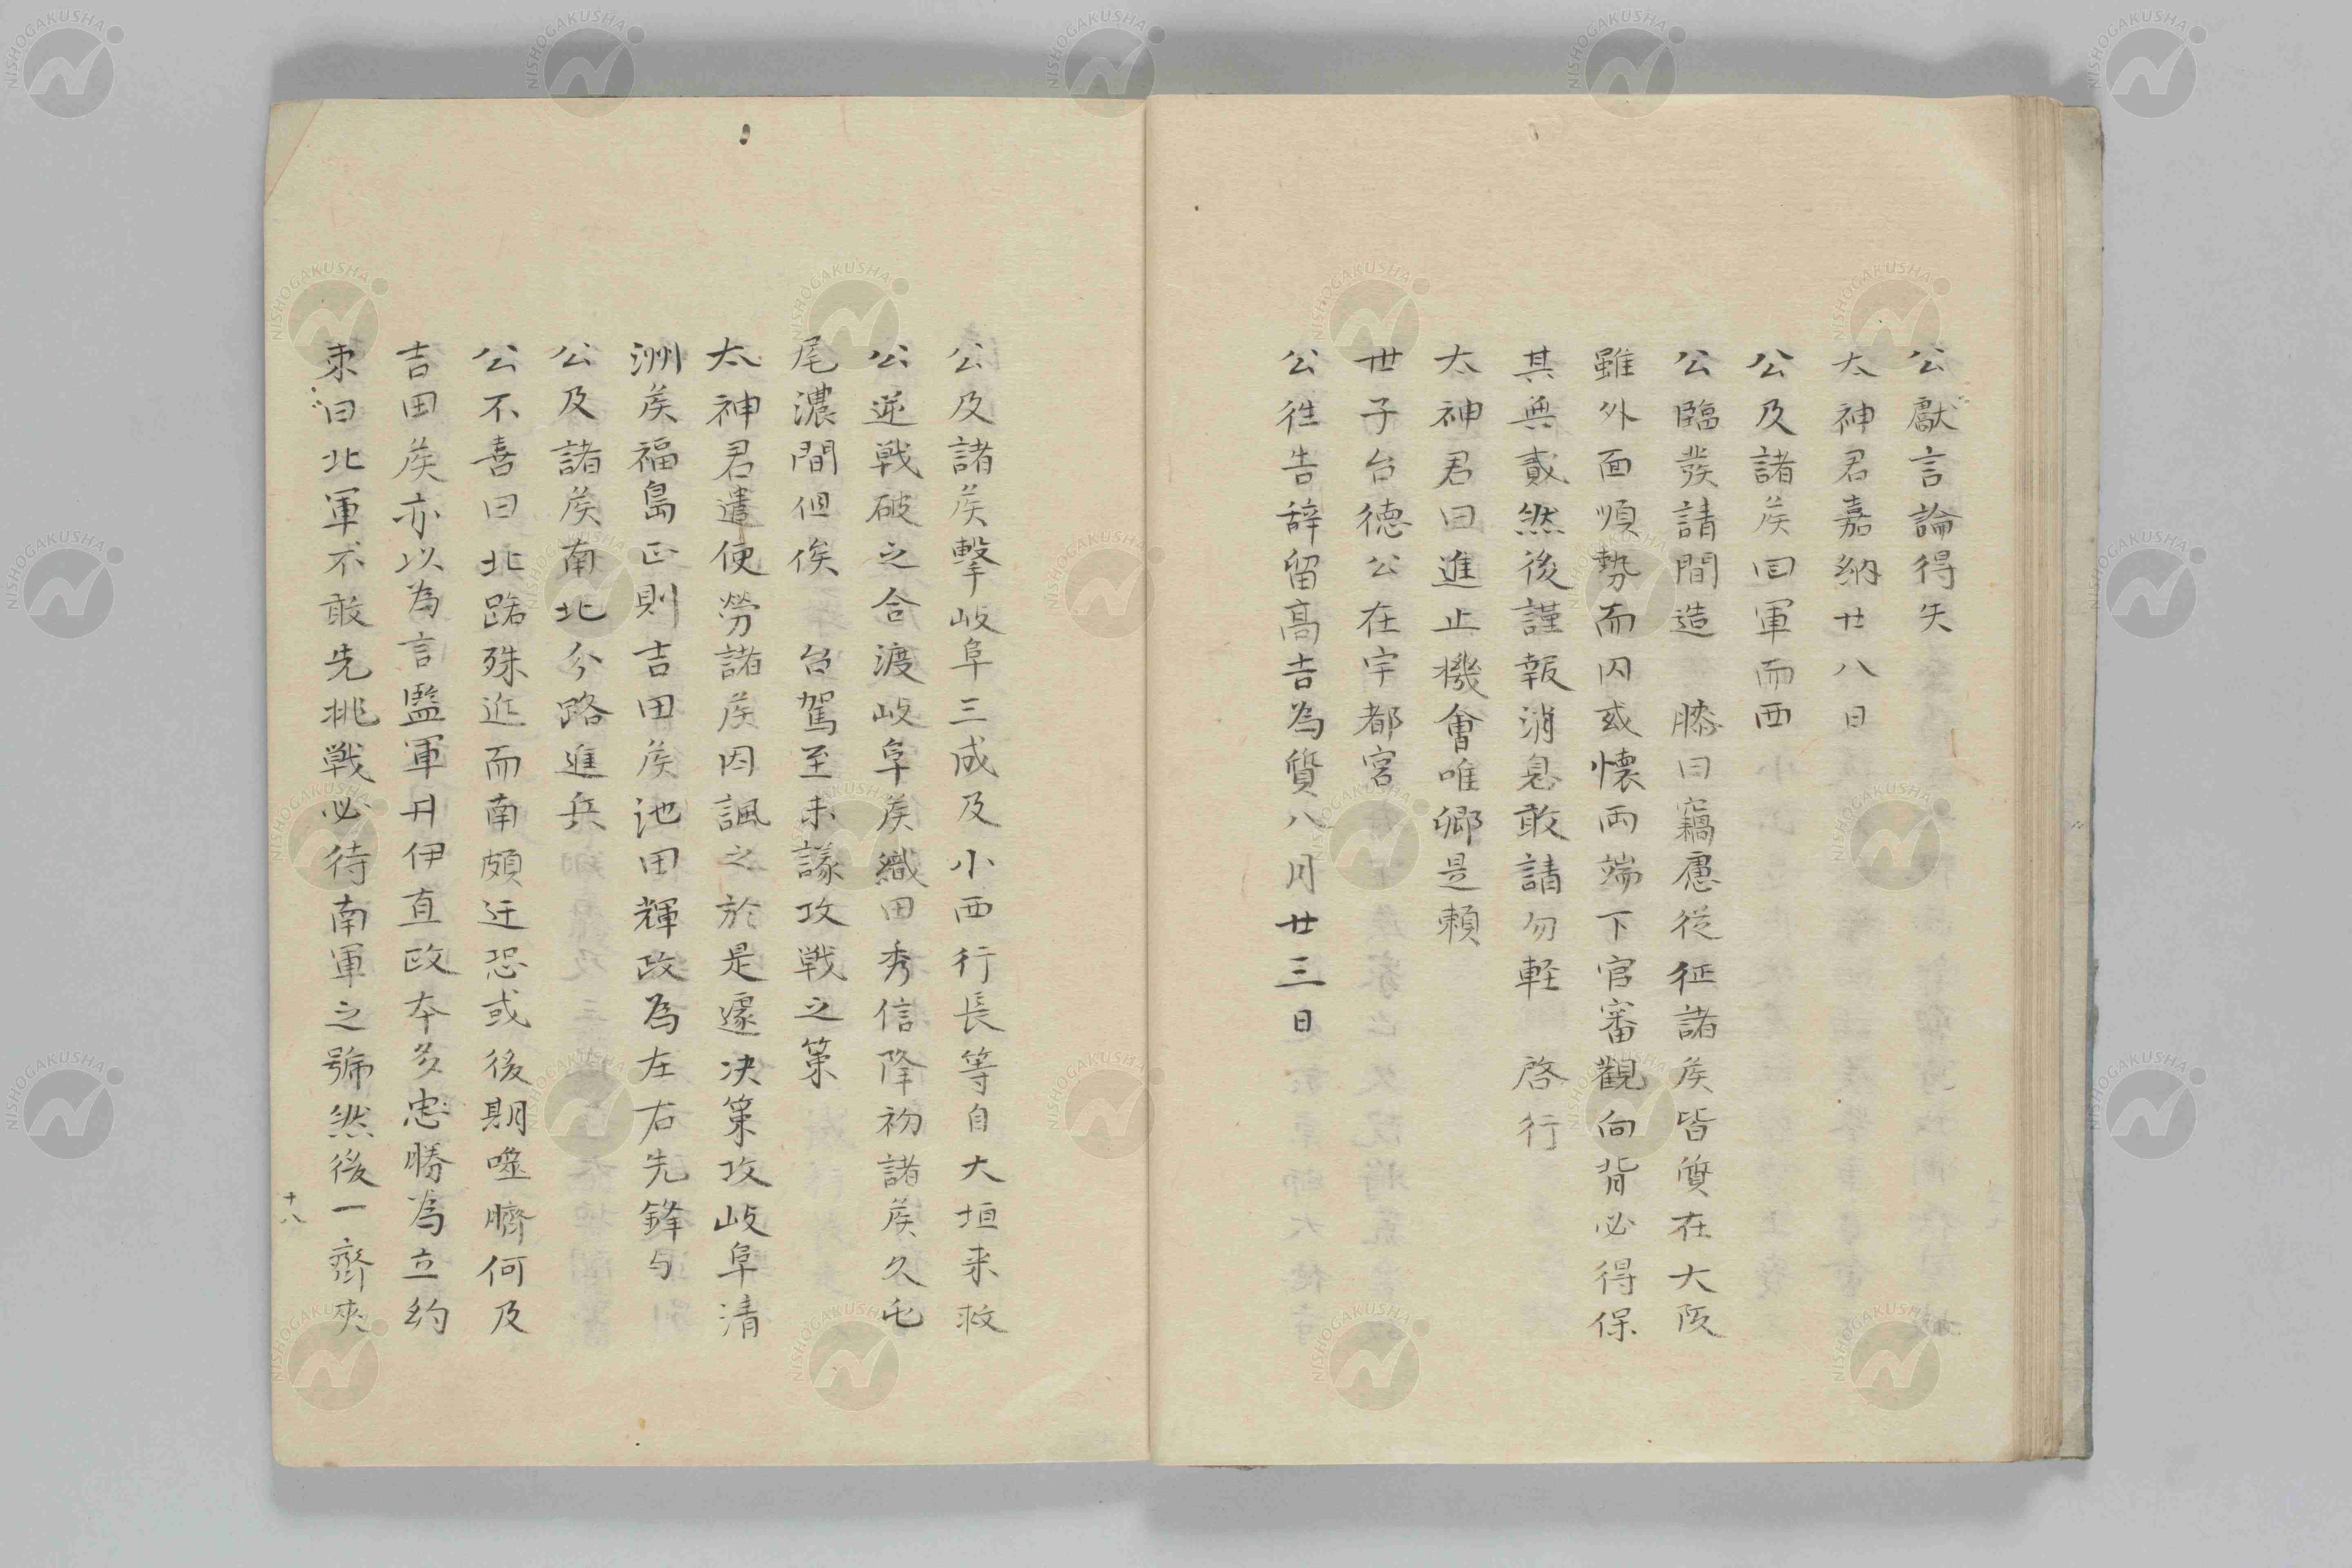 公獻言論得失
太神君嘉納廿八日
公及諸矦回軍而西
公臨發請間造　膝曰竊慮從征諸矦皆質在大阪
雖外面順勢而内或懷両端下官審觀向背必得保
其無貳然後謹報消息敢請勿輕　啓行
太神君曰進止機會唯卿是頼
世子台德公在宇都宮
公徃告辞留高吉為質八月廿三日
公及諸矦擊岐阜三成及小西行長等自大垣来救
公逆戦破之合渡岐阜矦織田秀信降初諸矦久屯
尾濃間但俟　台駕至未議攻戦之策
太神君遣使勞諸矦因諷之於是遽决策攻岐阜清
洲矦福島正則吉田矦池田輝政為左右先鋒与
公及諸矦南北分路進兵
公不喜曰北路殊近而南頗迂恐或後期噬臍何及
吉田矦亦以為言監軍井伊直政本多忠勝為立約
束曰北軍不敢先挑戦必待南軍之號然後一齊夾
十八
NISHOGAKUSHA